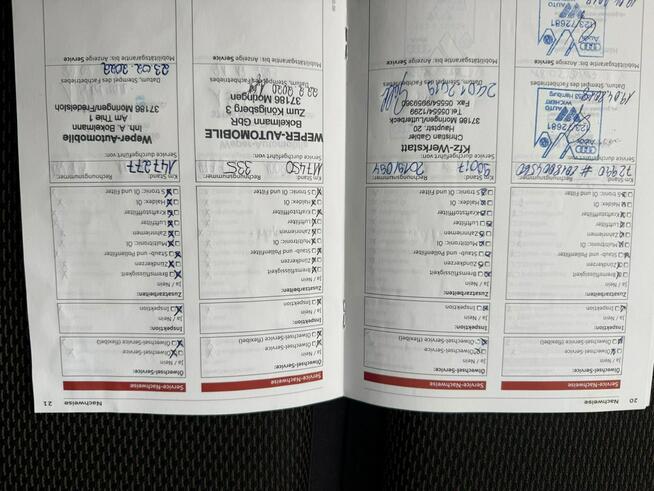 20 Nachweise
Service-Nachweise
Ölwechsel-Service:
Ja / Nein
Ölwechsel-Service
Ölwechsel-Service (flexibel)
Inspektion:
Ja / Nein
Inspektion
Zusatzarbeiten:
Ja / Nein
Bremsflüssigkeit
Zündkerzen
Staub- und Pollenfilter
Multitronic: Öl
Zahnriemen
Luftfilter
Kraftstofffilter
Haldex: Öl
S tronic: Öl und Filter
Km-Stand:
Rechnungsnummer:
72940
Service durchgeführt von:
Audi
Datum, Stempel des Fachbetriebes
Mobilitätsgarantie bis: Anzeige Service
Service-Nachweise
Ölwechsel-Service:
Ja / Nein
Ölwechsel-Service
Ölwechsel-Service (flexibel)
Inspektion:
Ja / Nein
Inspektion
Zusatzarbeiten:
Ja / Nein
Bremsflüssigkeit
Zündkerzen
Staub- und Pollenfilter
Multitronic: Öl
Zahnriemen
Luftfilter
Kraftstofffilter
Haldex: Öl
S tronic: Öl und Filter
Km-Stand:
Rechnungsnummer:
90017
Service durchgeführt von:
Kfz-Werkstatt
Christian Gabler
Hauptstr. 20
37186 Moringen/Lutterbeck
Datum, Stempel des Fachbetriebes
Mobilitätsgarantie bis: Anzeige Service
Nachweise 21
Service-Nachweise
Ölwechsel-Service:
Ja / Nein
Ölwechsel-Service
Ölwechsel-Service (flexibel)
Inspektion:
Ja / Nein
Inspektion
Zusatzarbeiten:
Ja / Nein
Bremsflüssigkeit
Zündkerzen
Staub- und Pollenfilter
Multitronic: Öl
Zahnriemen
Luftfilter
Kraftstofffilter
Haldex: Öl
S tronic: Öl und Filter
Km-Stand:
Rechnungsnummer:
117450
355
Service durchgeführt von:
WEPER-AUTOMOBILE
Bokelmann GbR
Zum Königsberg 3
37186 Moringen
Datum, Stempel des Fachbetriebes
Mobilitätsgarantie bis: Anzeige Service
Service-Nachweise
Ölwechsel-Service:
Ja / Nein
Ölwechsel-Service
Ölwechsel-Service (flexibel)
Inspektion:
Ja / Nein
Inspektion
Zusatzarbeiten:
Ja / Nein
Bremsflüssigkeit
Zündkerzen
Staub- und Pollenfilter
Multitronic: Öl
Zahnriemen
Luftfilter
Kraftstofffilter
Haldex: Öl
S tronic: Öl und Filter
Km-Stand:
Rechnungsnummer:
147277
Service durchgeführt von:
Weper-Automobile
Inh. A. Bokelmann
Am Thie 1
37186 Moringen/Fredelsloh
23.02.2022
Datum, Stempel des Fachbetriebes
Mobilitätsgarantie bis: Anzeige Service